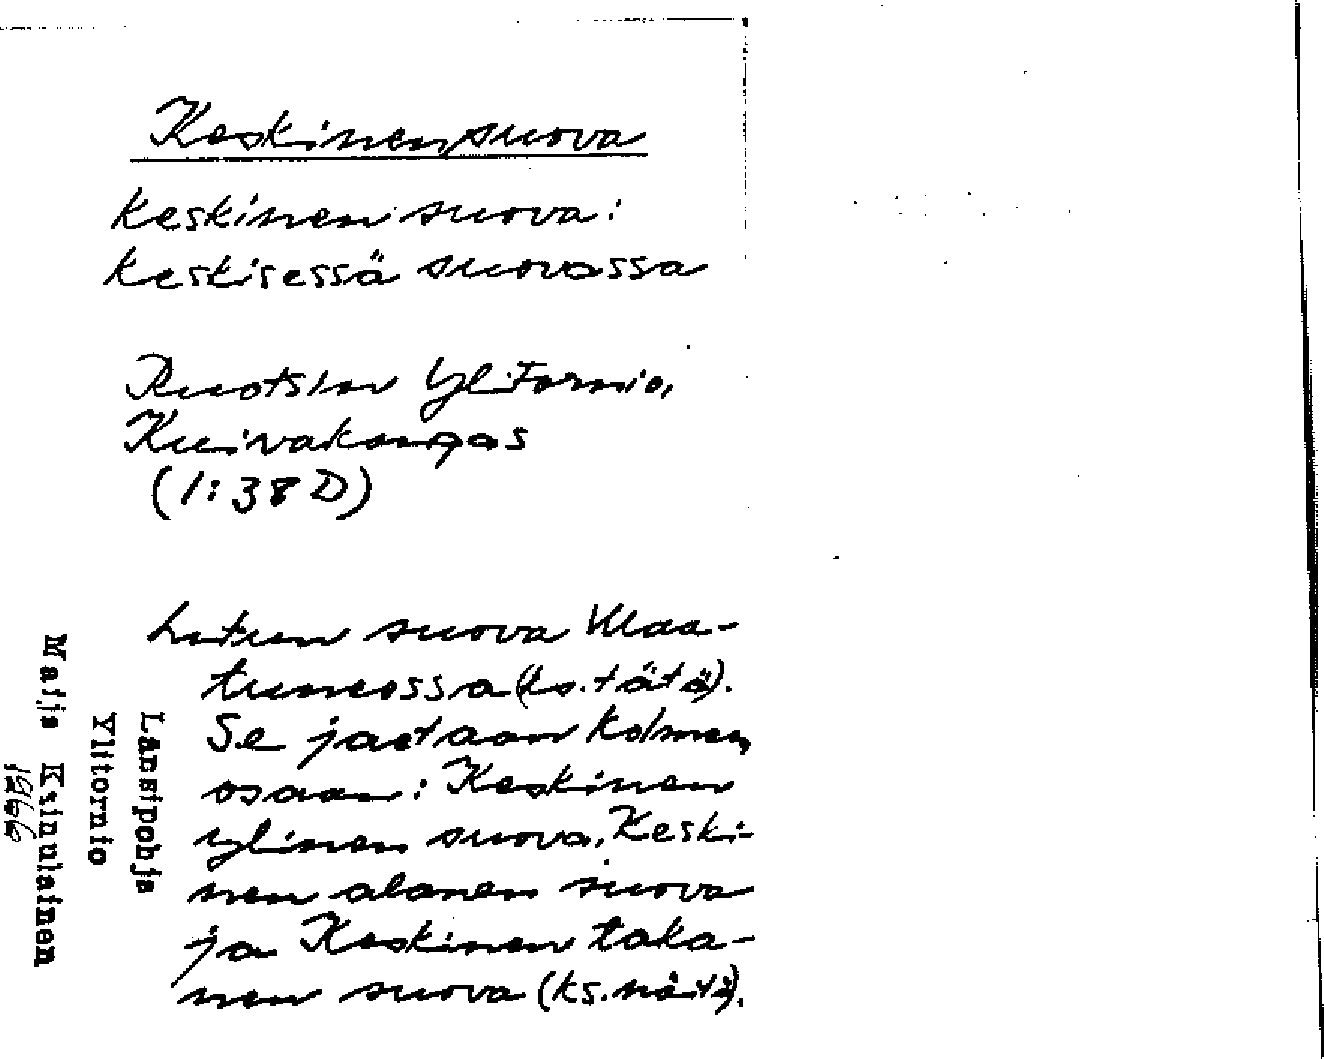 Keskinen suova
keskinen suova:
keskisessä suovassa
Ruotsin Ylitornio,
Kuivakangas
(1:38 D)
suova Maa-
(ks. tätä).
Se jaetaan kolmeen
osaan: Keskinen
ylinen suova, Keski-
nen alanen suova
ja Keskinen taka-
nen suova (ks. näitä).
Länsipohja
Ylitornio
Maija Kainulainen
1966